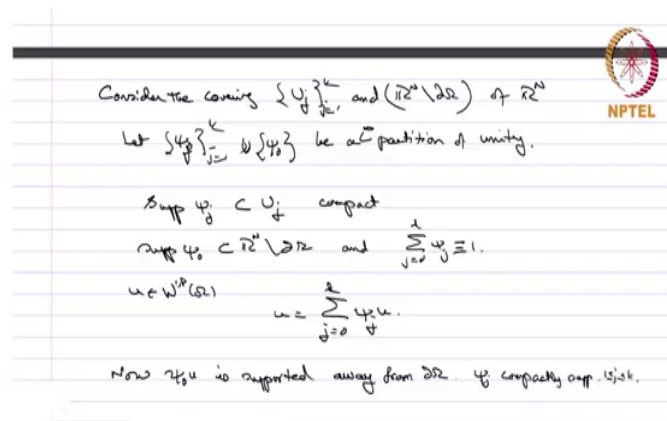 Consider the covering {U_j}_{j=1}^k and (ℝ^N \ ∂Ω) of ℝ^N
Let {ψ_j}_{j=1}^k ∪ {ψ_0} be a C^∞ partition of unity.
supp ψ_j ⊂ U_j compact
supp ψ_0 ⊂ ℝ^N \ ∂Ω and ∑_{j=0}^k ψ_j ≡ 1.
u ∈ W^{1,p}(Ω)
u = ∑_{j=0}^k ψ_j u.
Now ψ_0 u is supported away from ∂Ω. ψ_j compactly supp. 1≤j≤k.
NPTEL